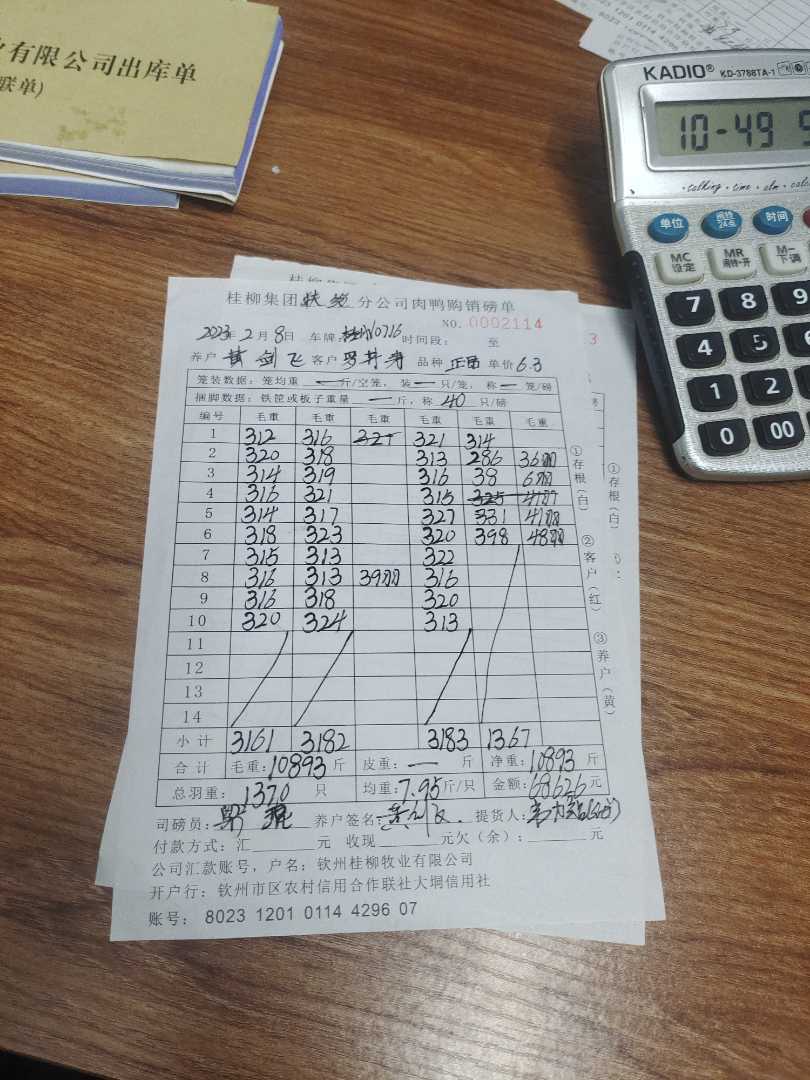 业有限公司出库单
联单)
KADIO® KD-3788TA-1
10-49 5
talking · time · alm · calc
单位 闹铃 24点 时间
MC 设定 MR 闹铃·开 M- 下调
7 8 9
4 5 6
1 2
0 00
桂柳集团 分公司肉鸭购销磅单
NO. 0002114
2023年2月8日 车牌: 0716 时间段: 至
养户 黄剑飞 客户 罗井海 品种 单价 6.3
笼装数据: 笼均重 — 斤/空笼, 装 — 只/笼, 称 — 笼/磅
捆脚数据: 铁筐或板子重量 — 斤, 称 40 只/磅
编号 毛重 毛重 毛重 毛重 毛重 毛重
1 312 316 321 314
2 320 318 313 286 36只
3 314 319 316 38 6只
4 316 321 315 325 41只
5 314 317 327 331 41只
6 318 323 320 398 48只
7 315 313 322
8 316 313 39只 316
9 316 318 320
10 320 324 313
11
12
13
14
小计 3161 3182 3183 1367
合计 毛重: 10893 斤 皮重: — 斤 净重: 10893 斤
总羽重: 1370 只 均重: 7.95 斤/只 金额: 68626 元
司磅员: 养户签名: 提货人:
付款方式: 汇 元 收现 元欠(余): 元
公司汇款账号, 户名: 钦州桂柳牧业有限公司
开户行: 钦州市区农村信用合作联社大垌信用社
账号: 8023 1201 0114 4296 07
①存根(白) ②客户(红) ③养户(黄)
①存根(白)